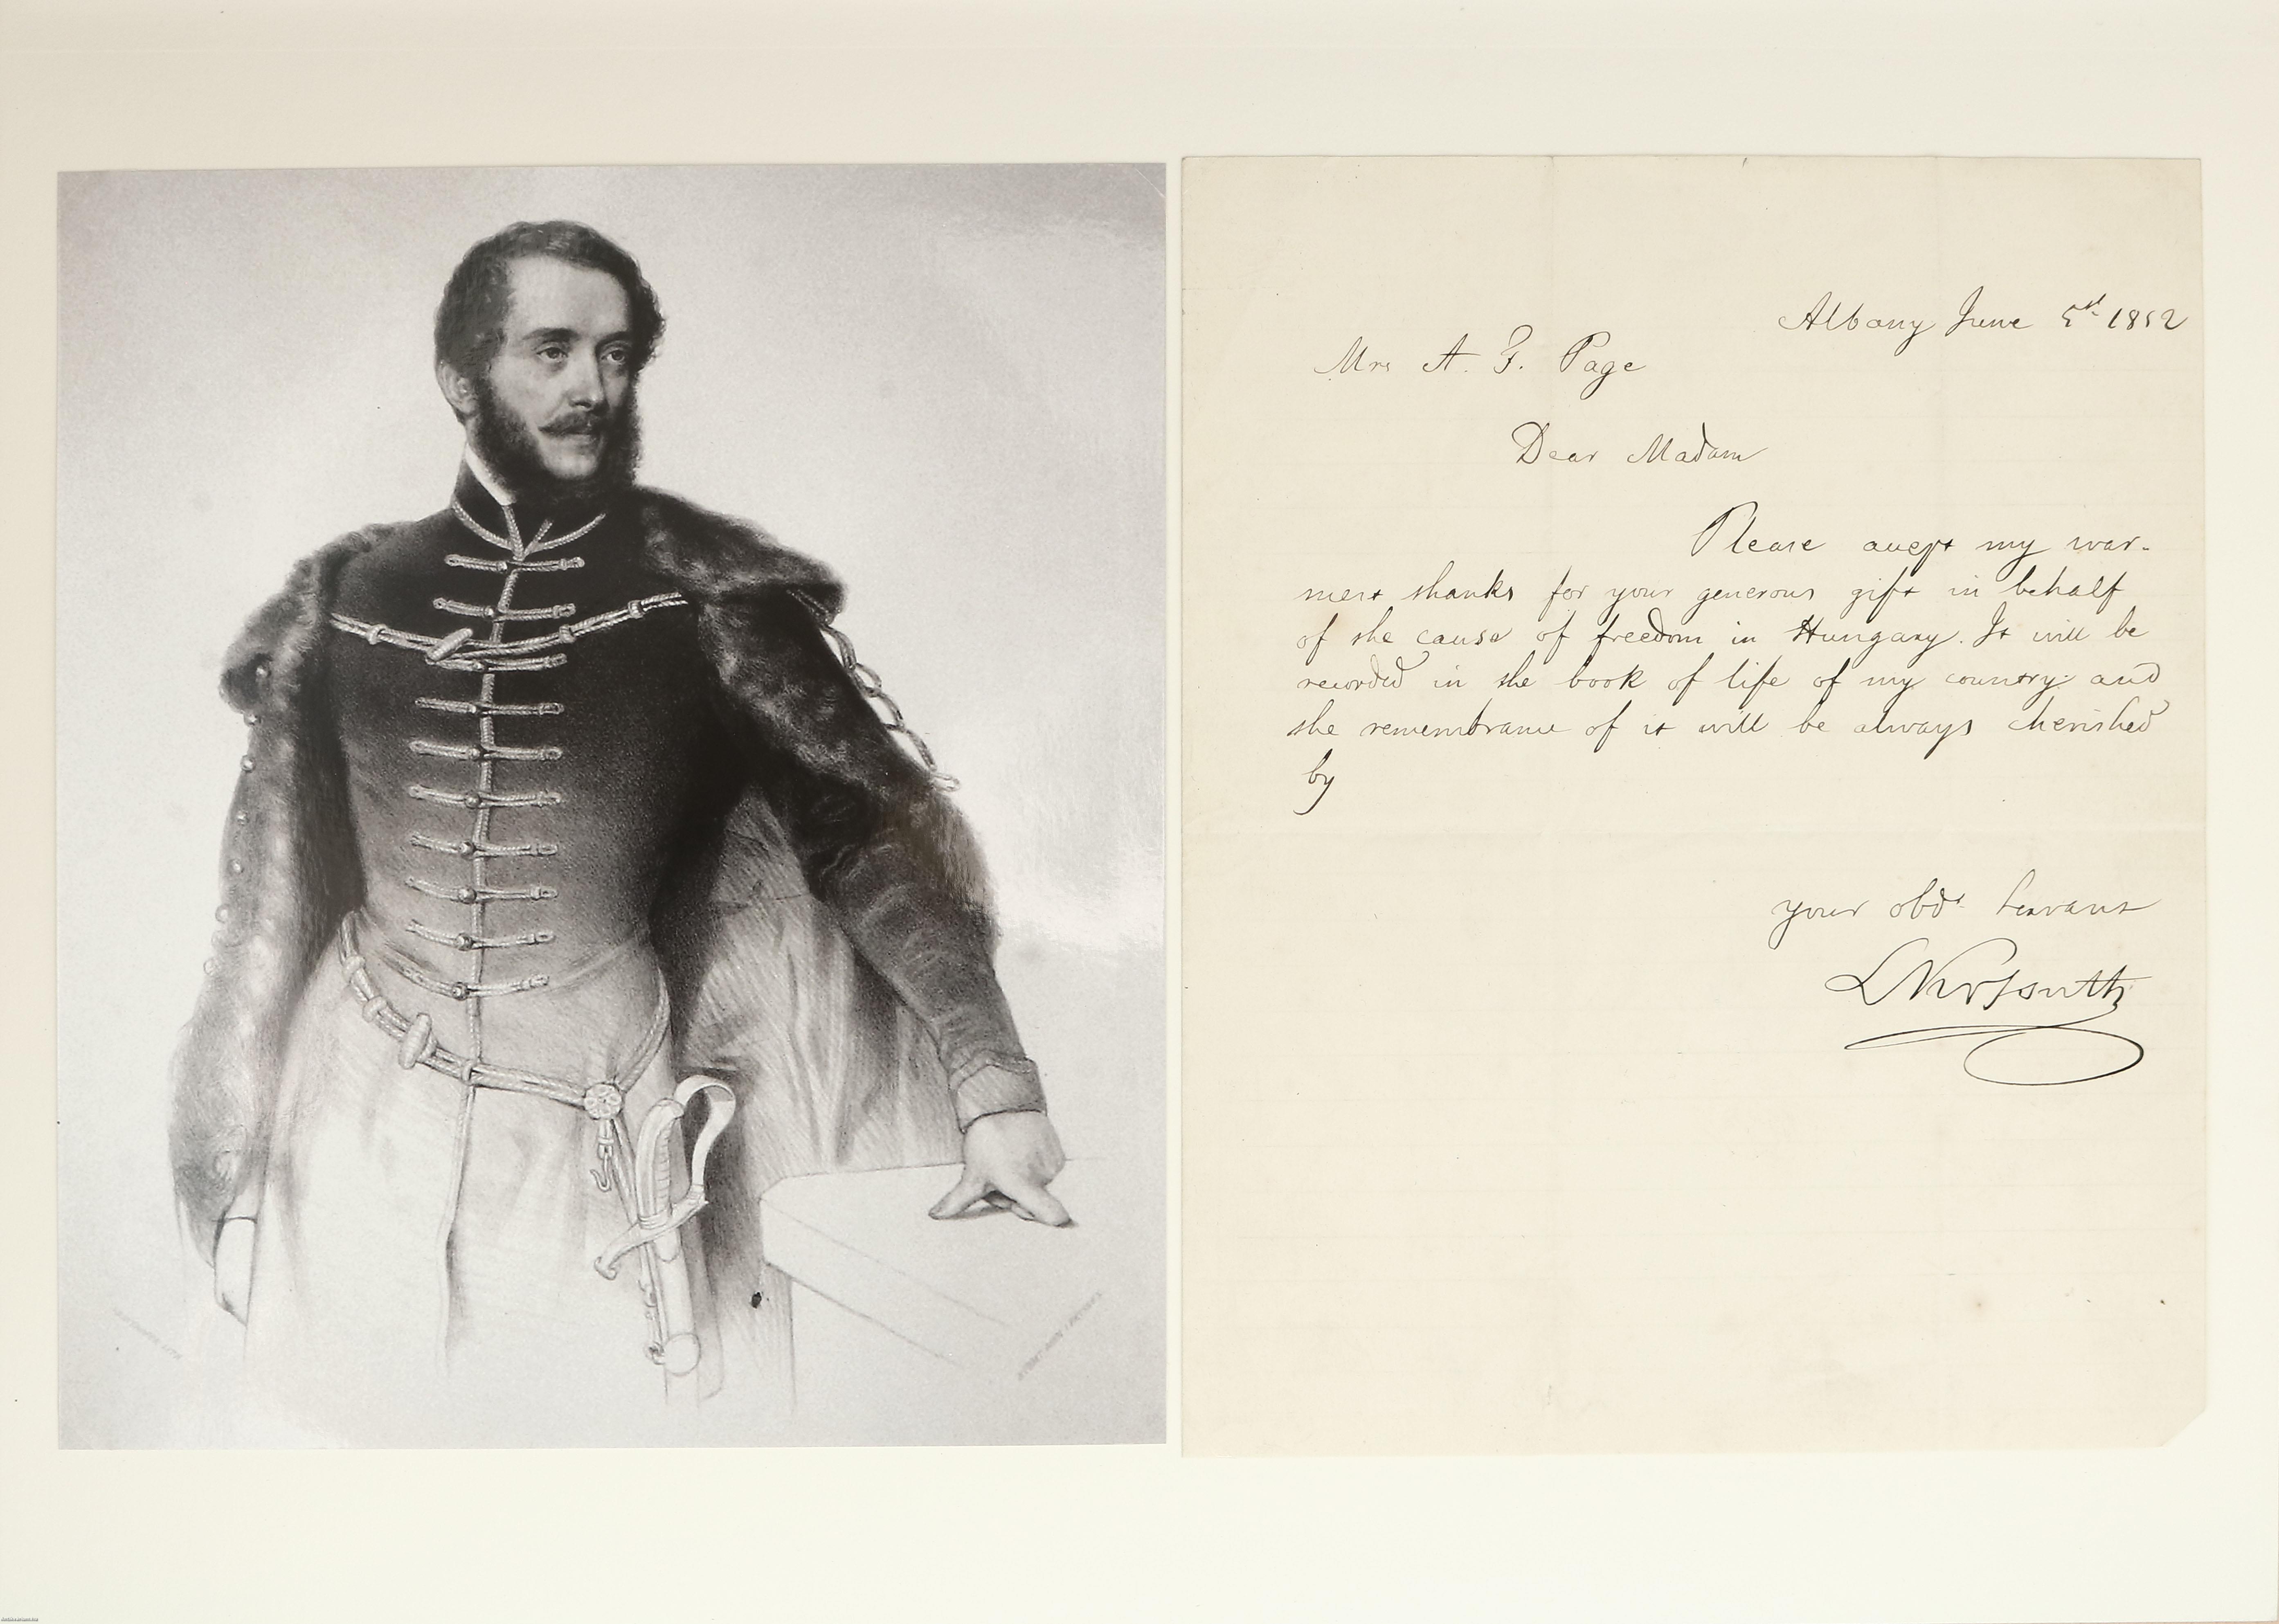 Albany June 5th 1852
Mrs A. F. Page
Dear Madam
Please accept my war-
mest thanks for your generous gift in behalf
of the cause of freedom in Hungary. It will be
recorded in the book of life of my country and
the remembrance of it will be always cherished
by
your obdt servant
LKossuth